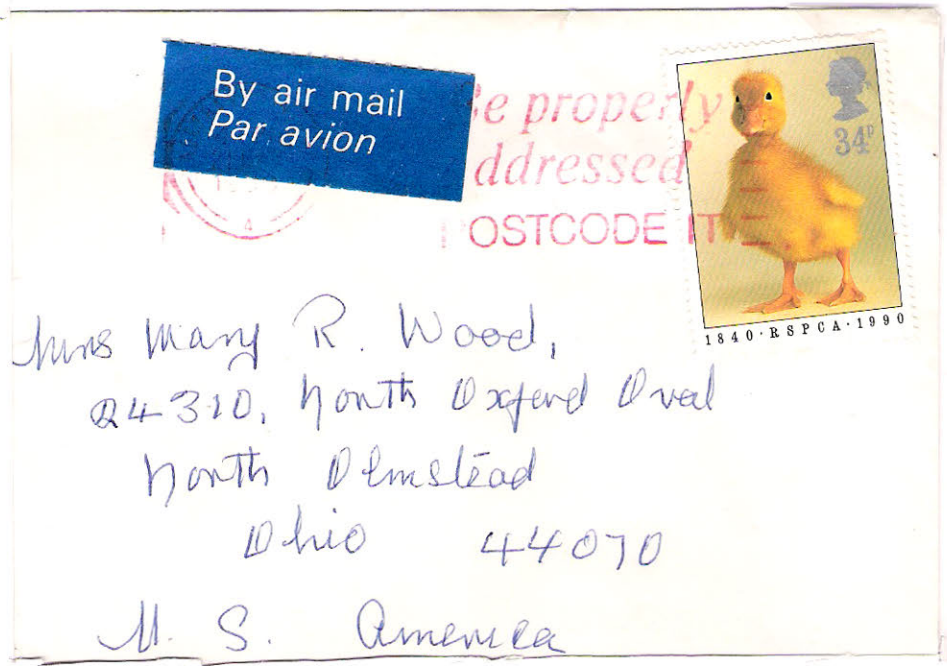 By air mail
Par avion
e properly
ddressed
POSTCODE IT
34P
1840·RSPCA·1990
A
Mrs Mary R. Wood,
24310, North Oxford Oval
North Olmstead
Ohio 44070
U. S. America